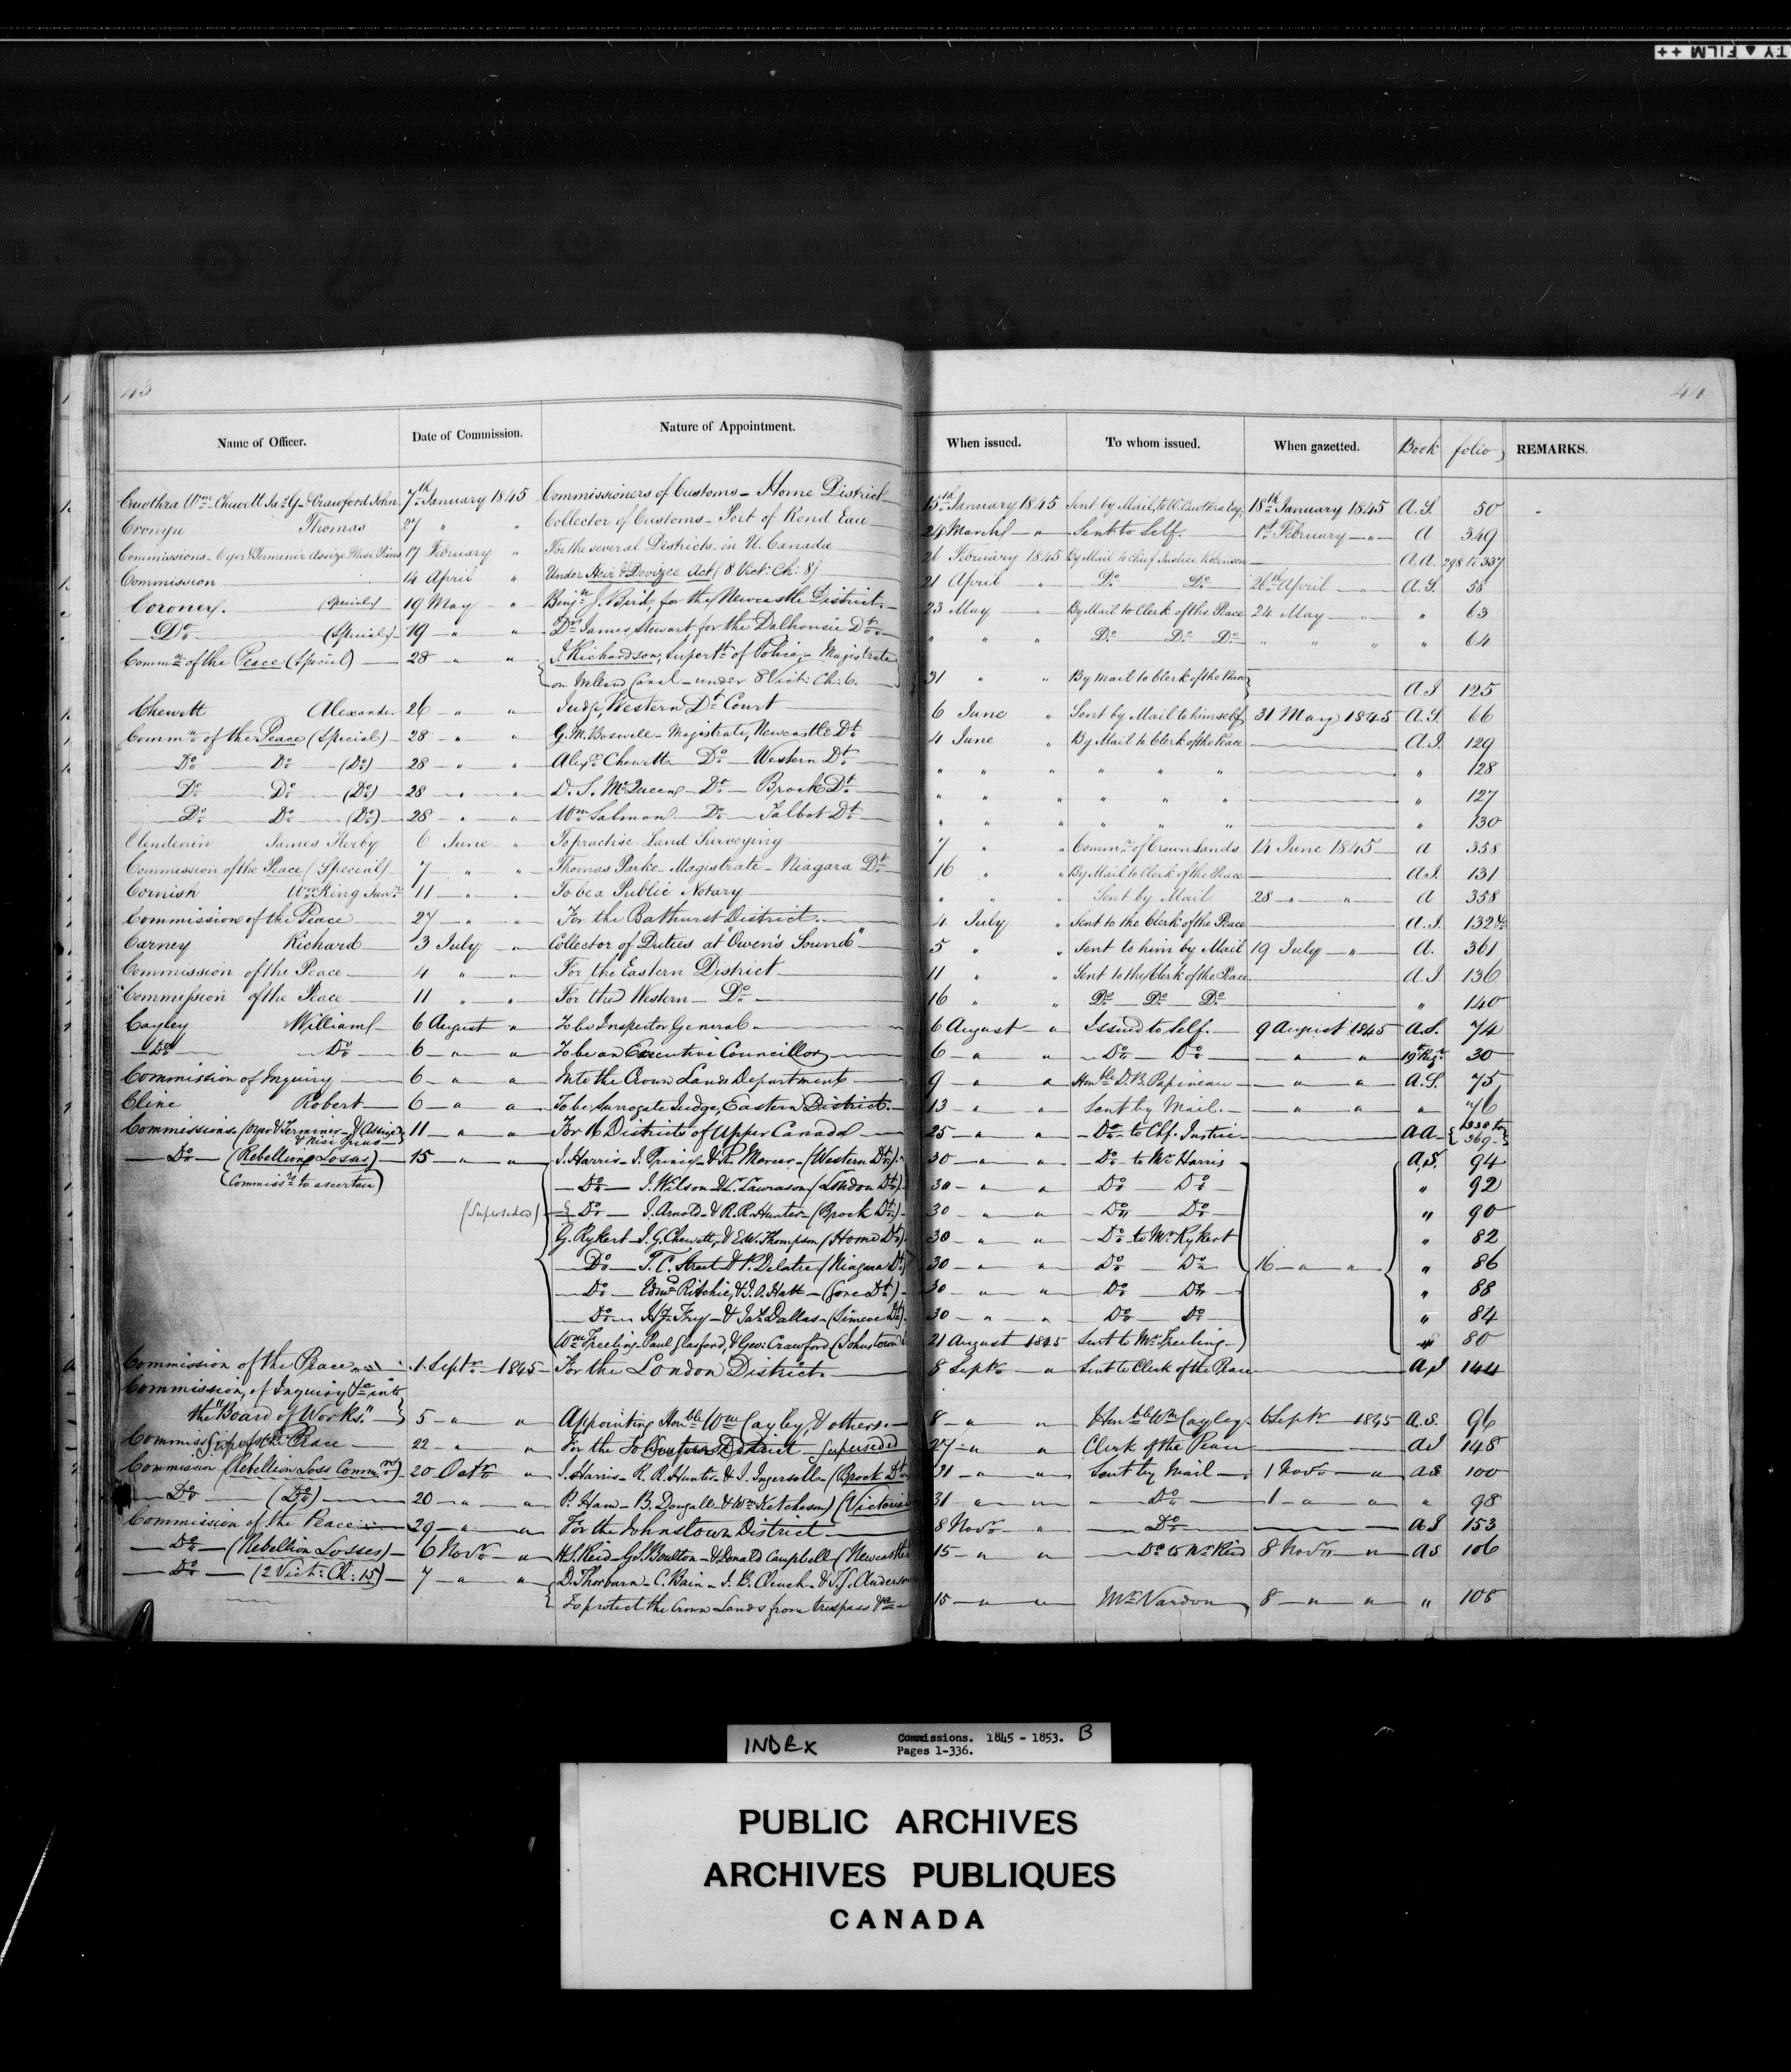 43
44
Name of Officer. Date of Commission. Nature of Appointment. When issued. To whom issued. When gazetted. Book folio REMARKS.
Cawthra Wm. Chewett Jas. G. & Crawford John 7th January 1845 Commissioners of Customs - Home District 15th January 1845 Sent by Mail, to W. Cawthra Esq. 18th January 1845 A.S. 50
Cronyn Thomas 27 " " Collector of Customs - Port of Rond Eau 24 March " Sent to Self. 1st February " A 349
Commissions - Oyer & Terminer Assize & Nisi Prius 17 February " For the several Districts in U. Canada 26 February 1845 By Mail to Chief Justice Robinson A.A. 298 to 337
Commission 14 April " Under Heir & Devizee Act (8 Vict: Ch: 8) 21 April " Do. Do. 26th April " A.S. 58
Coroner (Special) 19 May " Benjn. J. Bird for the Newcastle District 23 May " By Mail to Clerk of the Peace 24 May " " 63
Do. (Special) 19 " " Do. James Stewart for the Dalhousie Dt. " " " Do. Do. Do. " " " " 64
Commn. of the Peace (Special) 28 " " J. Richardson, Supert. of Police, - Magistrate
on Welland Canal - under 8 Vict: Ch: 6. 31 " " By Mail to Clerk of the Peace A.I 125
Chewett Alexander 26 " " Judge, Western Dt. Court 6 June " Sent by Mail to himself 31 May 1845 A.S. 66
Commn. of the Peace (Special) 28 " " G. M. Boswell - Magistrate, Newcastle Dt. 4 June " By Mail to Clerk of the Peace A.I. 129
Do. Do. (Do.) 28 " " Alexr. Chewett Do. Western Dt. " " " " " " 128
Do. Do. (Do.) 28 " " D. S. McQueen Do. Brock Dt. " " " " " " " 127
Do. Do. (Do.) 28 " " Wm. Salmon Do. Talbot Dt. " " " " " " " 130
Clendenin James Kerby 6 June " To practise Land Surveying 7 " " Commr. of Crown Lands 14 June 1845 A 358
Commission of the Peace (Special) 7 " " Thomas Parke Magistrate - Niagara Dt. 16 " " By Mail to Clerk of the Peace A.I. 131
Cornish Wm. King Junr. 11 " " To be a Public Notary " " " Sent by Mail 28 " " A 358
Commission of the Peace 27 " " For the Bathurst District. 4 July " Sent to the Clerk of the Peace A.I. 132
Carney Richard 3 July " Collector of Duties at "Owen's Sound" 5 " " Sent to him by Mail 19 July " A. 361
Commission of the Peace 4 " " For the Eastern District 11 " " Sent to the Clerk of the Peace A.I 136
Commission of the Peace 11 " " For the Western Do. 16 " " Do. Do. Do. " 140
Cayley William 6 August " To be Inspector General 6 August " Issued to Self. 9 August 1845 A.S. 74
Do. Do. 6 " " To be an Executive Councillor 6 " " Do. Do. " " 30
Commission of Inquiry 6 " " Into the Crown Lands Department 9 " " Honble. D. B. Papineau " " A.S. 75
Cline Robert 6 " " To be Surrogate Judge, Eastern District. 13 " " Sent by Mail. " " " 76
Commissions (Oyer & Terminer & Assize
& Nisi Prius 11 " " For 16 Districts of Upper Canada 25 " " Do. to Chf. Justice A.A. 338 to 369
Do. (Rebellion Losses) 15 " " J. Harris - J. Prince & R. Mercer - (Western Dt.) 30 " " Do. to Mr Harris A.S. 94
(Commissrs. to ascertain) Do. J. Wilson & L. Lawrason (London Dt.) 30 " " Do. Do. " 92
(Superseded) Do. J. Arnold & R. R. Hunter - (Brock Dt.) 30 " " Do. Do. " 90
G. Rykert - J. G. Chewett, & E. W. Thompson (Home Dt.) 30 " " Do. to Mr. Rykert " 82
Do. T. C. Street & P. Delatre (Niagara Dt.) 30 " " Do. Do. 16 " " " 86
Do. Edmd. Ritchie, & J. O. Hatt - (Gore Dt.) 30 " " Do. Do. " 88
Do. Fry - & Jas. Dallas - (Simcoe Dt.) 30 " " Do. Do. " 84
Wm. Freeling - Paul Glasford, & Geo: Crawford (Johnstown 21 August 1845 Sent to Mr. Freeling " 80
Commission of the Peace 1. Septr. 1845 For the London District. 8 Septr. " Sent to Clerk of the Peace A.I 144
Commission, of Inquiry &c into
the "Board of Works." 5 " " Appointing Honble. Wm. Cayley, & others. 8 " " Honble. Wm. Cayley 6 Septr. 1845 A.S. 96
Commission of the Peace 22 " " For the Johnstown District Superseded 27 " " Clerk of the Peace A.I 148
Commission (Rebellion Loss Commn.) 20 Octr. " J. Harris - R. R. Hunter & J. Ingersoll - (Brock Dt. 31 " " Sent by Mail 1 Novr. " A.S 100
Do. (Do.) 20 " " P. Ham - B. Dougall & Wm. Ketcheson) (Victoria 31 " " Do. 1 " " " 98
Commission of the Peace 29 " " For the Johnstown District 8 Novr. " Do. A.I 153
Do. (Rebellion Losses) 6 Novr. " H. S. Reid - G. S. Boulton - & Donald Campbell (Newcastle 15 " " Do. to Mr. Reid 8 Novr. " A.S 106
Do. (2 Vict: Ch: 15) 7 " " D. Thorburn - C. Bain - J. B. Clench - & T. G. Anderson
To protect the Crown Lands from trespass &c 15 " " Mr. Vardon 8 " " " 108
INDEX Commissions. 1845 - 1853. B
Pages 1-336.
PUBLIC ARCHIVES
ARCHIVES PUBLIQUES
CANADA